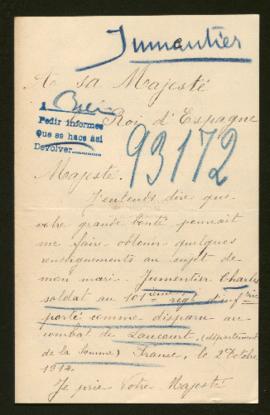 Jumentier
A sa Majesté
Roi d'Espagne
A Berlin
Pedir informes
Que se hace asi
Devolver
93172
Majesté.
J'entends dire que
votre grande bonté pourrait
me faire obtenir quelques
renseignements au sujet de
mon mari. Jumentier Charles
soldat au 101ième régt d'inf
porté comme disparu au
combat de Lancourt, (département
de la Somme) France, le 2 Octobre
1914.
Je prie Votre Majesté